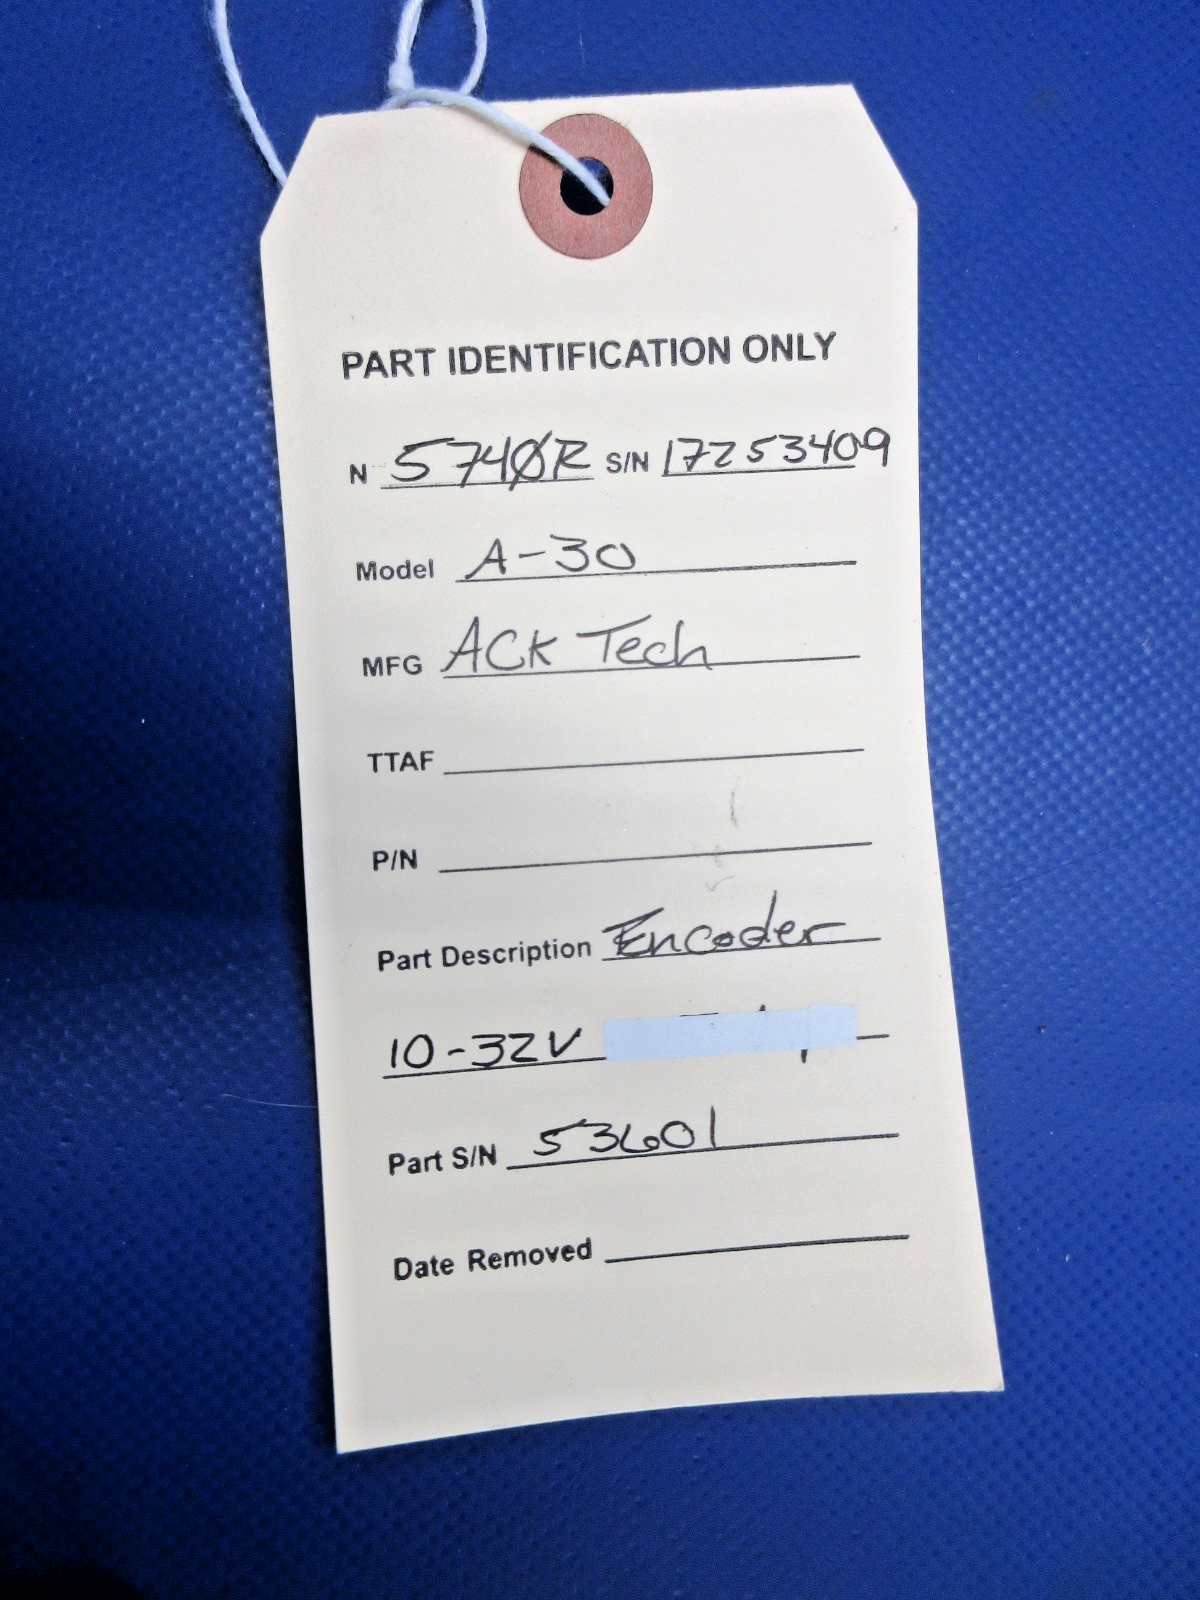 PART IDENTIFICATION ONLY
N 5740R S/N 17253409
Model A-30
MFG ACK Tech
TTAF
P/N
Part Description Encoder
10-32V
Part S/N 53601
Date Removed